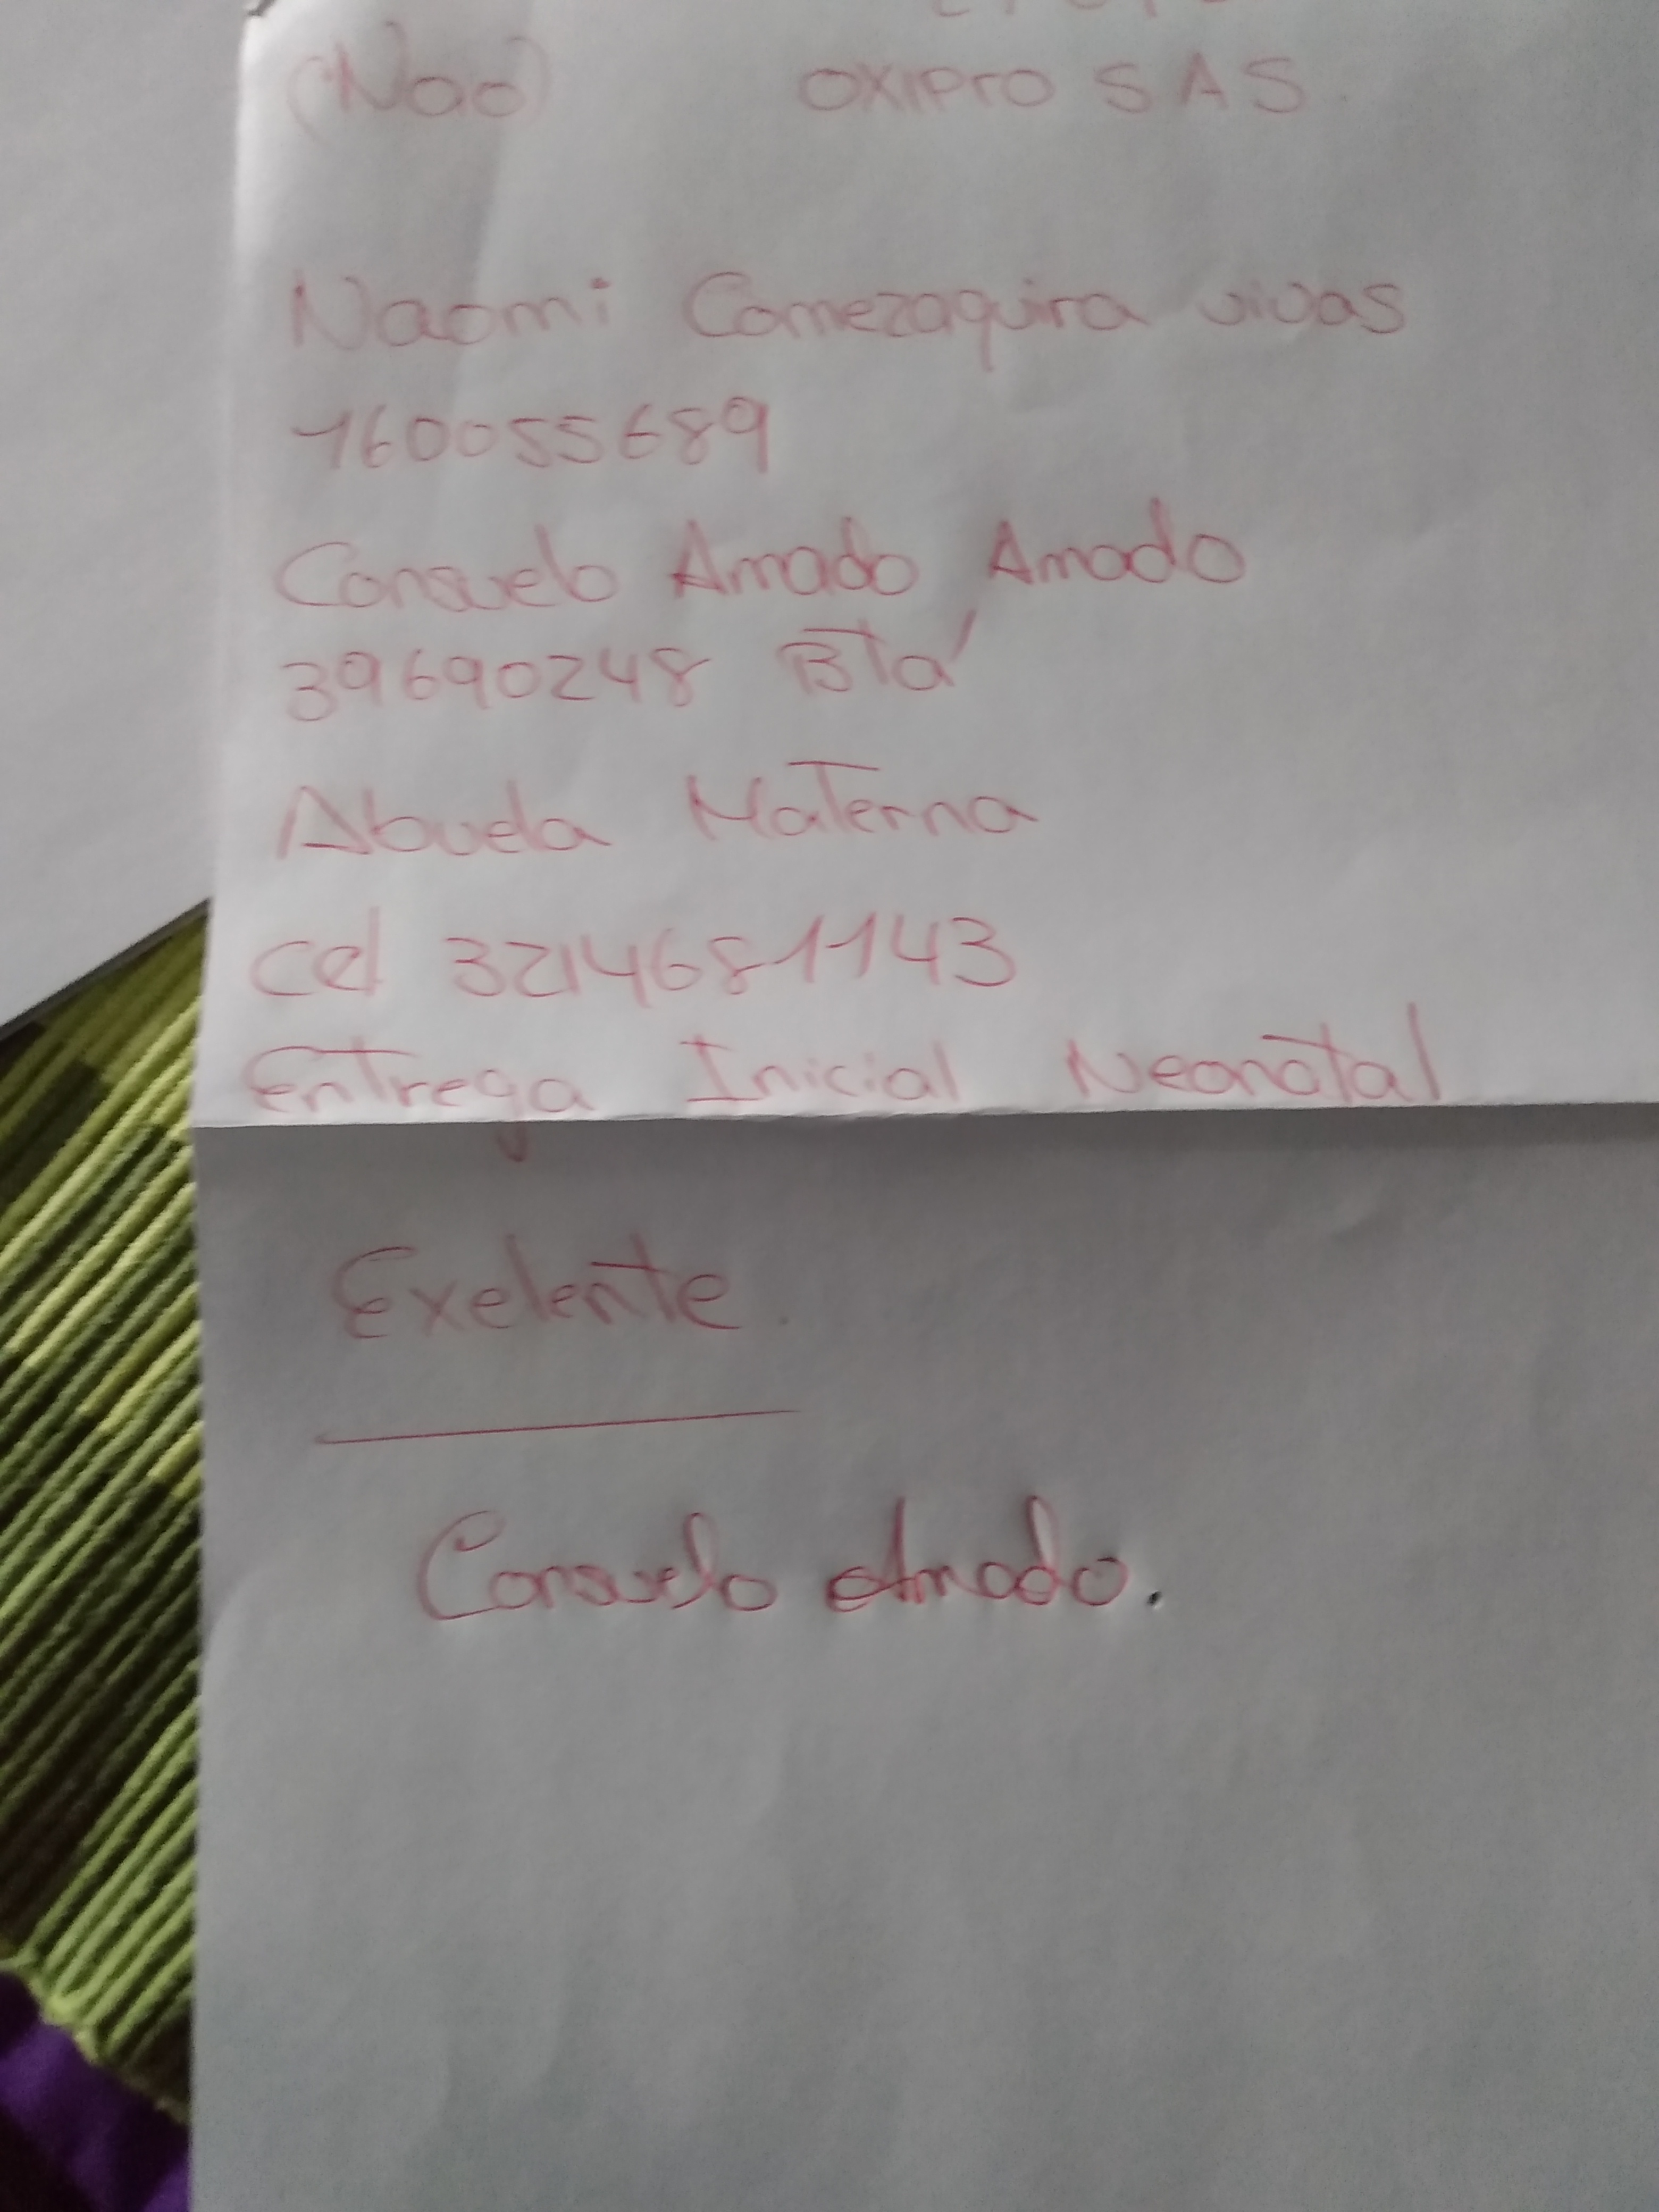 (Nao) OXIPrO SAS.
Naomi Camezaquira vivas
160055689
Consuelo Amado Amado
39690248 BTá
Abuela Materna
Cel 3214681143
Entrega Inicial Neonatal
Exelente.
Consuelo Amado.